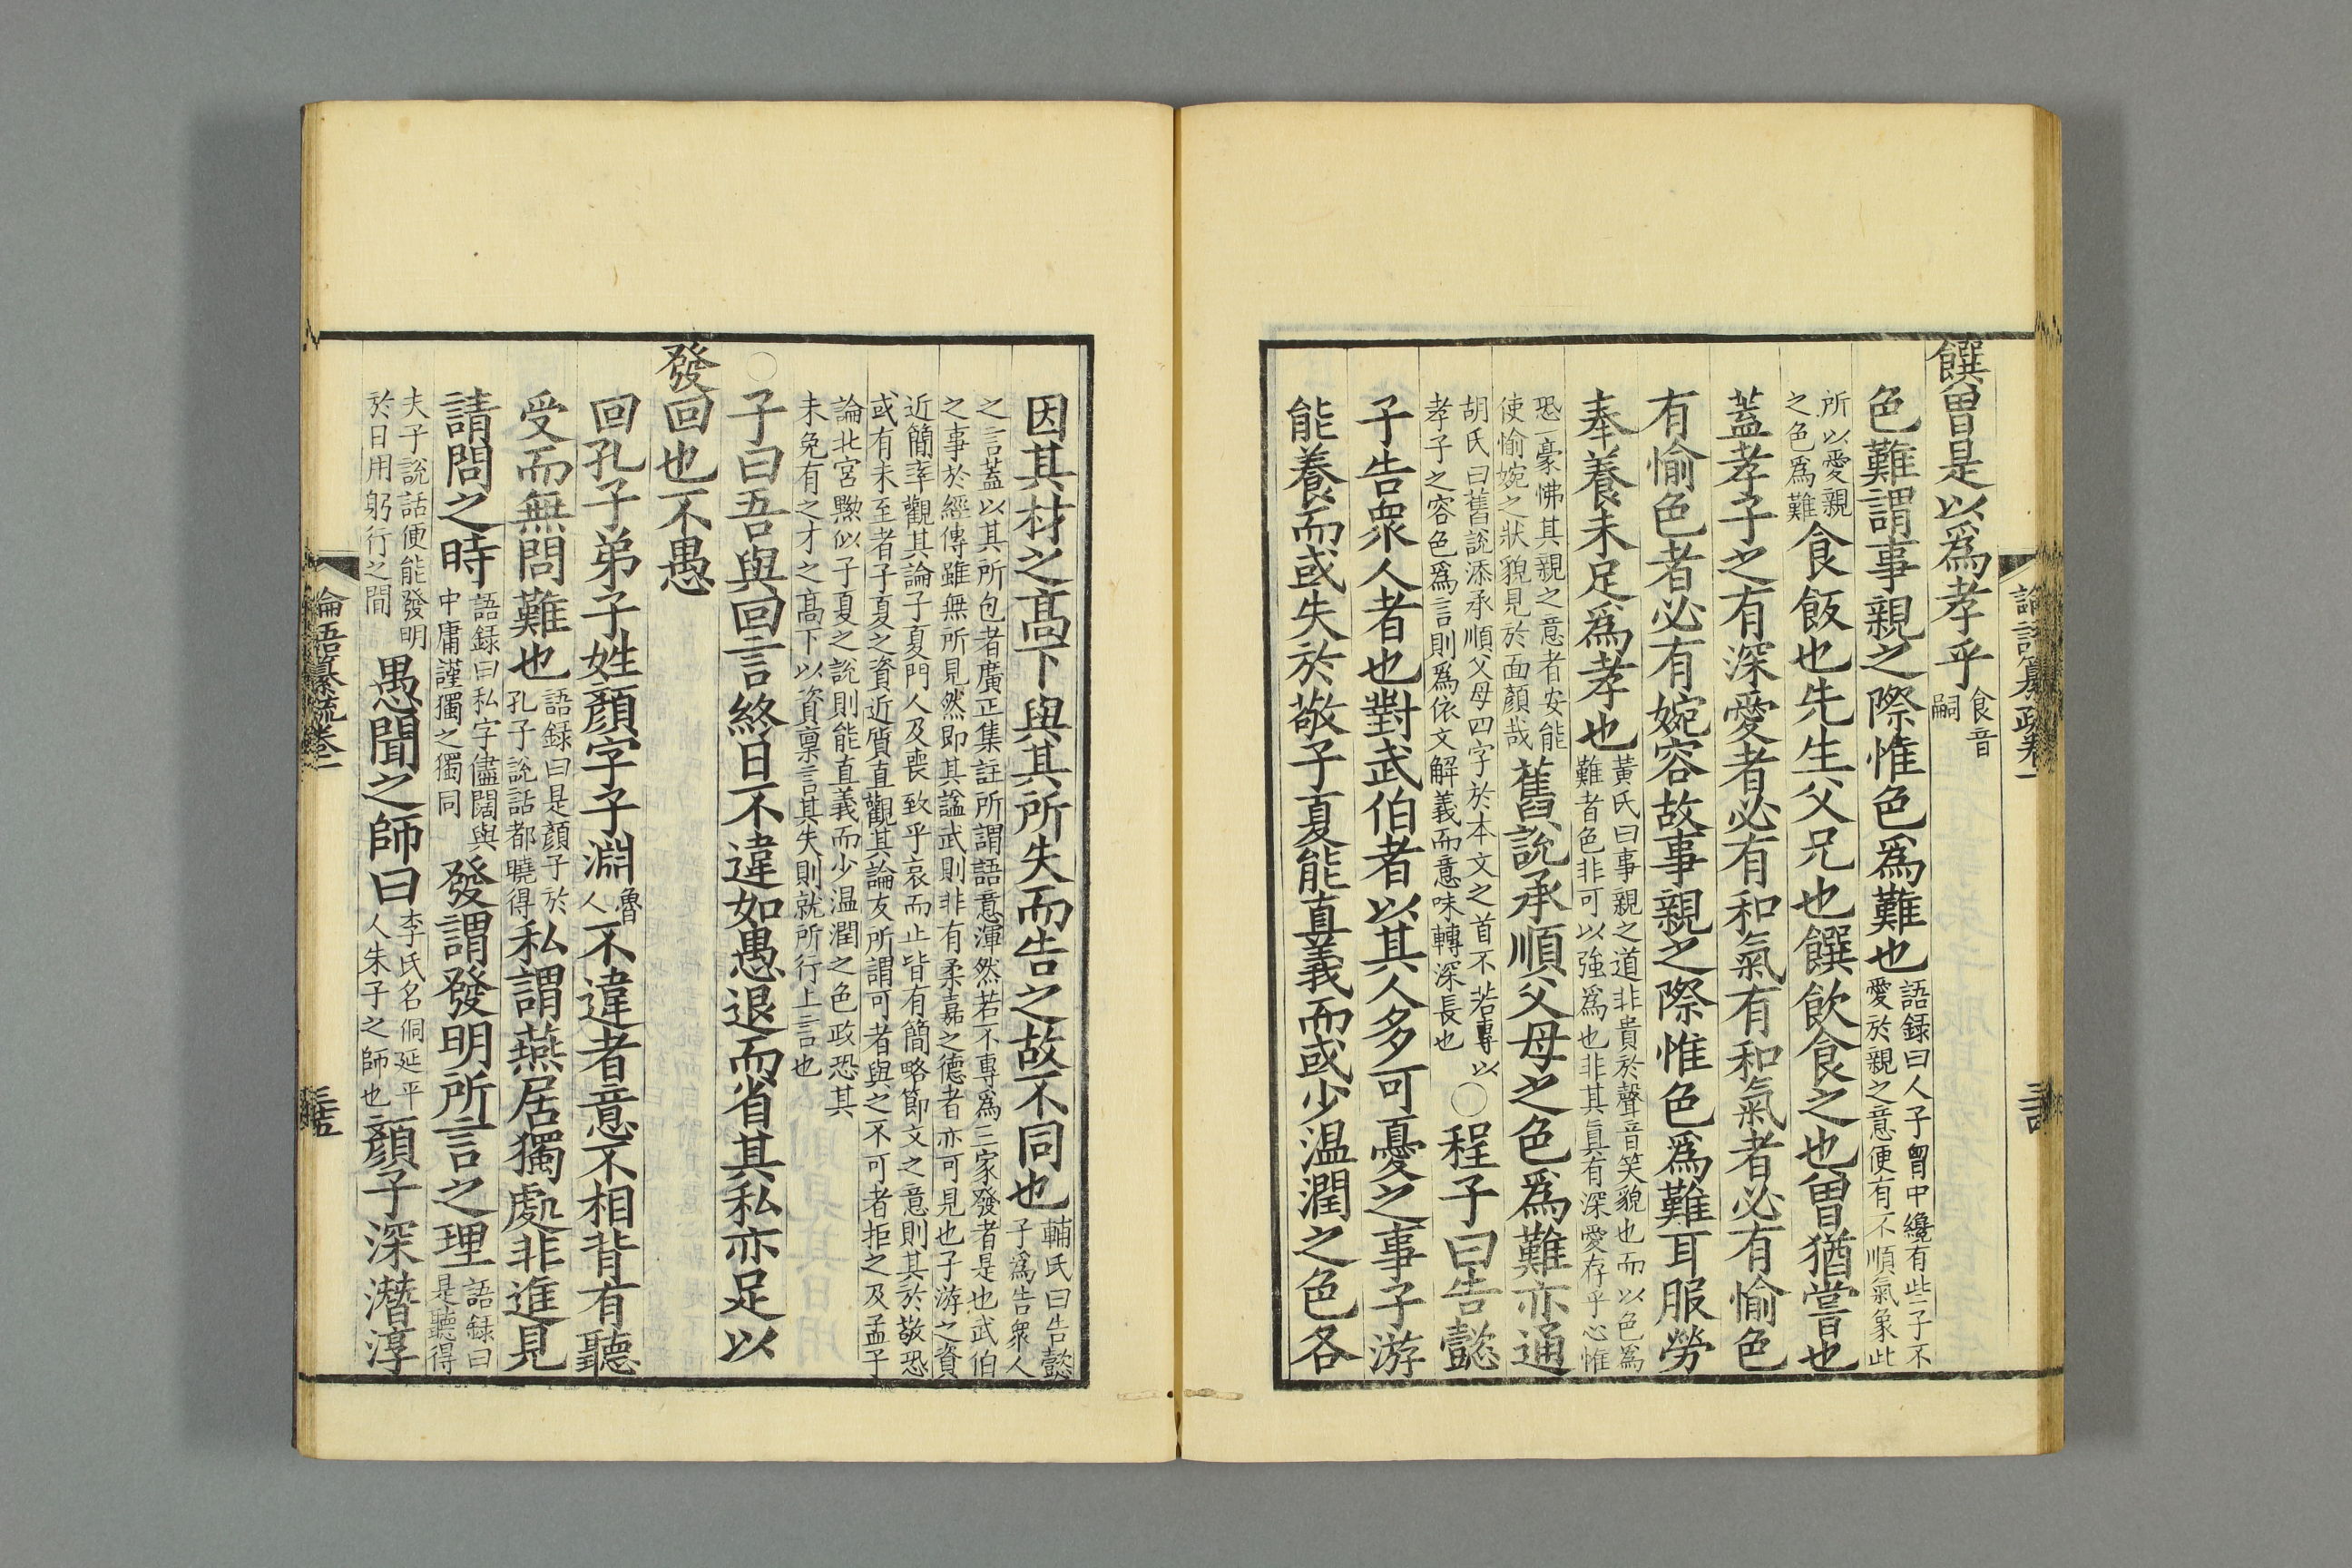 論語纂疏卷一
饌曾是以爲孝乎食音嗣
色難謂事親之際惟色爲難也語録曰人子胷中纔有些子不愛於親之意便有不順氣象此
所以愛親之色爲難食飯也先生父兄也饌飲食之也曾猶嘗也
蓋孝子之有深愛者必有和氣有和氣者必有愉色
有愉色者必有婉容故事親之際惟色爲難耳服勞
奉養未足爲孝也黃氏曰事親之道非貴於聲音笑貌也而以色爲難者色非可以強爲也非其真有深愛存乎心惟
恐一豪怫其親之意者安能使愉婉之狀貌見於面顏哉舊說承順父母之色爲難亦通
胡氏曰舊說添承順父母四字於本文之首不若專以孝子之容色爲言則爲依文解義而意味轉深長也○程子曰告懿
子告衆人者也對武伯者以其人多可憂之事子游
能養而或失於敬子夏能直義而或少温潤之色各
因其材之高下與其所失而告之故不同也輔氏曰告懿子爲告衆人
之言蓋以其所包者廣正集註所謂語意渾然若不專爲三家發者是也武伯之事於經傳雖無所見然即其謚武則非有柔嘉之德者亦可見也子游之資
近簡率觀其論子夏門人及喪致乎哀而止皆有簡略節文之意則其於敬恐或有未至者子夏之資近質直觀其論友所謂可者與之不可者拒之及孟子
論北宮黝似子夏之說則能直義而少温潤之色政恐其未免有之才之高下以資稟言其失則就所行上言也
○子曰吾與回言終日不違如愚退而省其私亦足以
發回也不愚
回孔子弟子姓顏字子淵魯人不違者意不相背有聽
受而無問難也語録曰是顏子於孔子說話都曉得私謂燕居獨處非進見
請問之時語録曰私字儘闊與中庸謹獨之獨同發謂發明所言之理語録曰是聽得
夫子說話便能發明於日用躬行之間愚聞之師曰李氏名侗延平人朱子之師也顏子深潛淳
論語纂疏卷一
三十五